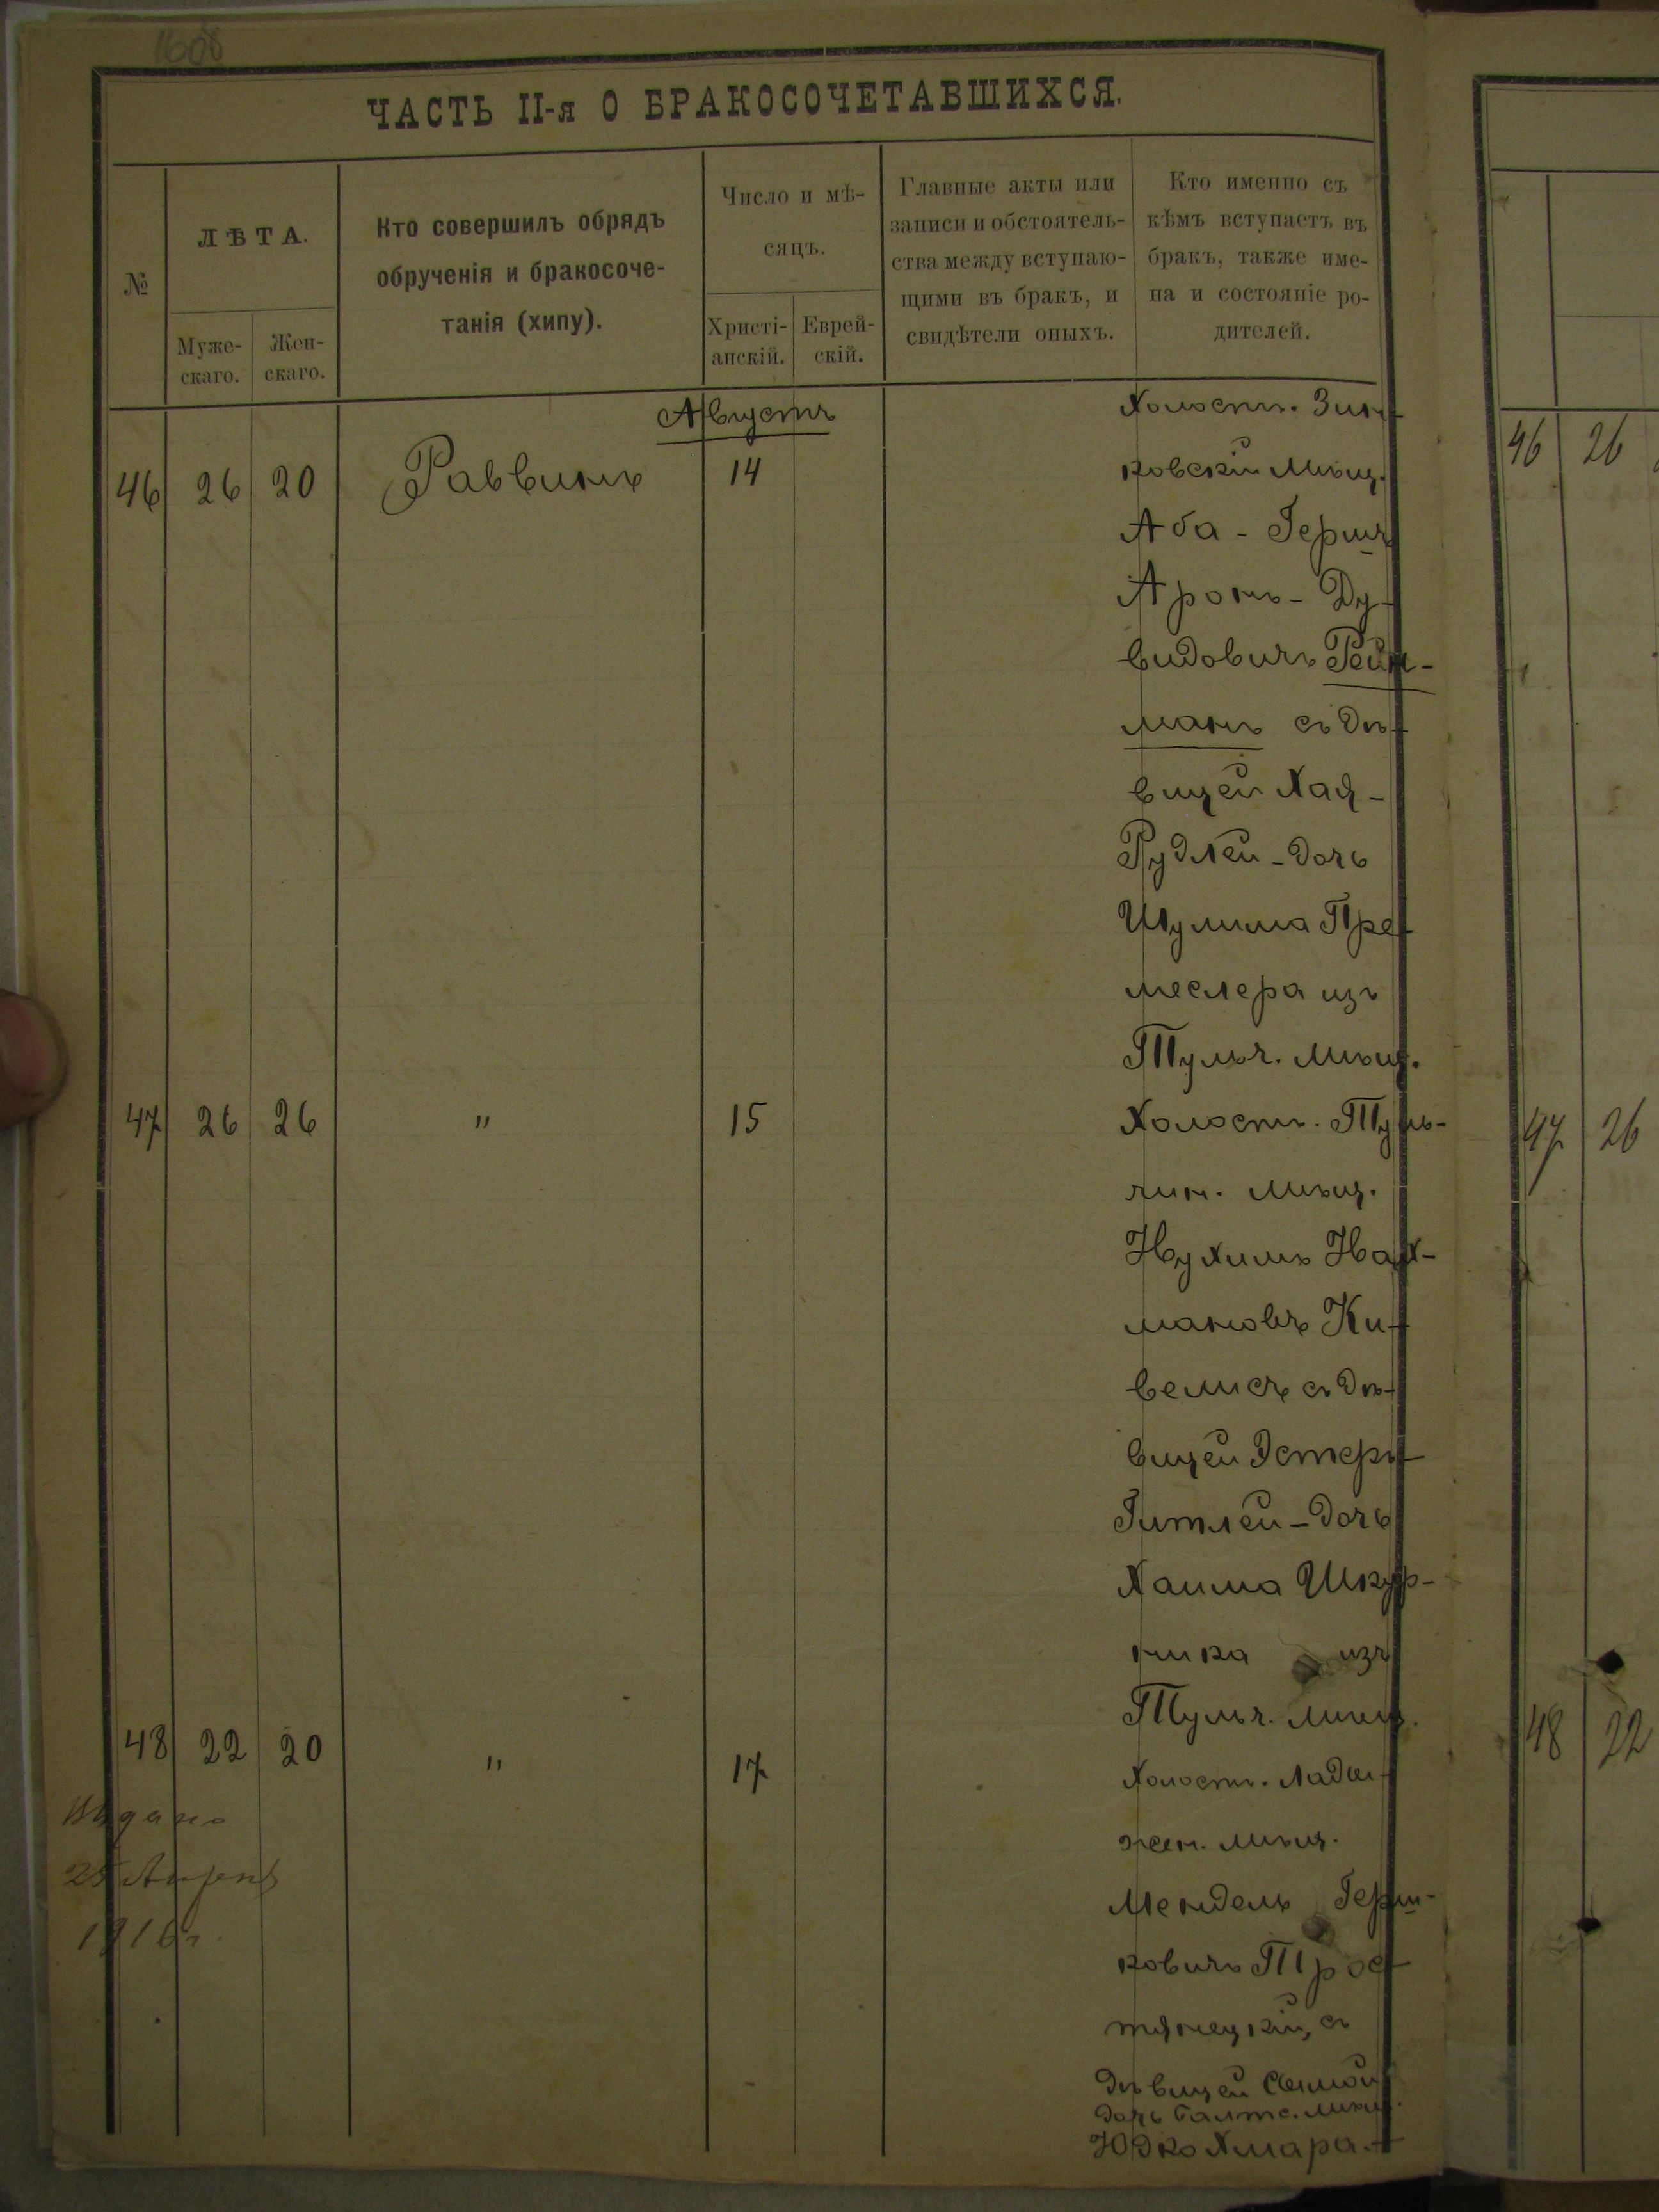 1608
ЧАСТЬ II-я О БРАКОСОЧЕТАВШИХСЯ.
№
ЛѢТА.
Муже-
скаго.
Жен-
скаго.
Кто совершилъ обрядъ
обрученія и бракосоче-
танія (хипу).
Число и мѣ-
сяцъ.
Христі-
анскій.
Еврей-
скій.
Главные акты или
записи и обстоятель-
ства между вступаю-
щими въ бракъ, и
свидѣтели оныхъ.
Кто именно съ
кѣмъ вступаетъ въ
бракъ, также име-
на и состояніе ро-
дителей.
Августъ
46 26 20 Раввинъ 14
Холост. Зинь-
ковскій Мѣщ.
Аба - Гершъ
Аронъ - Ду-
видовичъ Рейн-
манъ съ дѣ-
вицей Хая-
Рудлей - дочь
Шулима Пре-
меслера изъ
Тульч. мѣщ.
47 26 26 " 15
Холост. Туль-
чин. мѣщ.
Нухимъ Нах-
мановъ Ки-
велисъ съ дѣ-
вицей Эстеръ
Гитлей - дочь
Хаима Шкур-
ника изъ
Тульч. мѣщ.
48 22 20 " 17
Холост. Лады-
жен. мѣщ.
Мендель Герш-
ковичъ Трос-
тянецкій, съ
дѣвицей Симой
дочь Балтс. мѣщ.
Юдко Хмара.
Выдано
25 Апрѣля
1916 г.
46 26
47 26
48 22